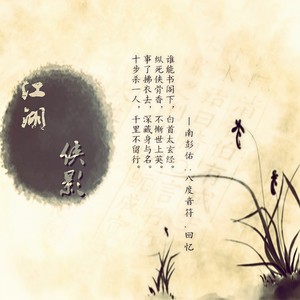 江湖
侠影
谁能书阁下,白首太玄经。
纵死侠骨香,不惭世上英。
事了拂衣去,深藏身与名。
十步杀一人,千里不留行。
—南彭佑..八度音符.回忆